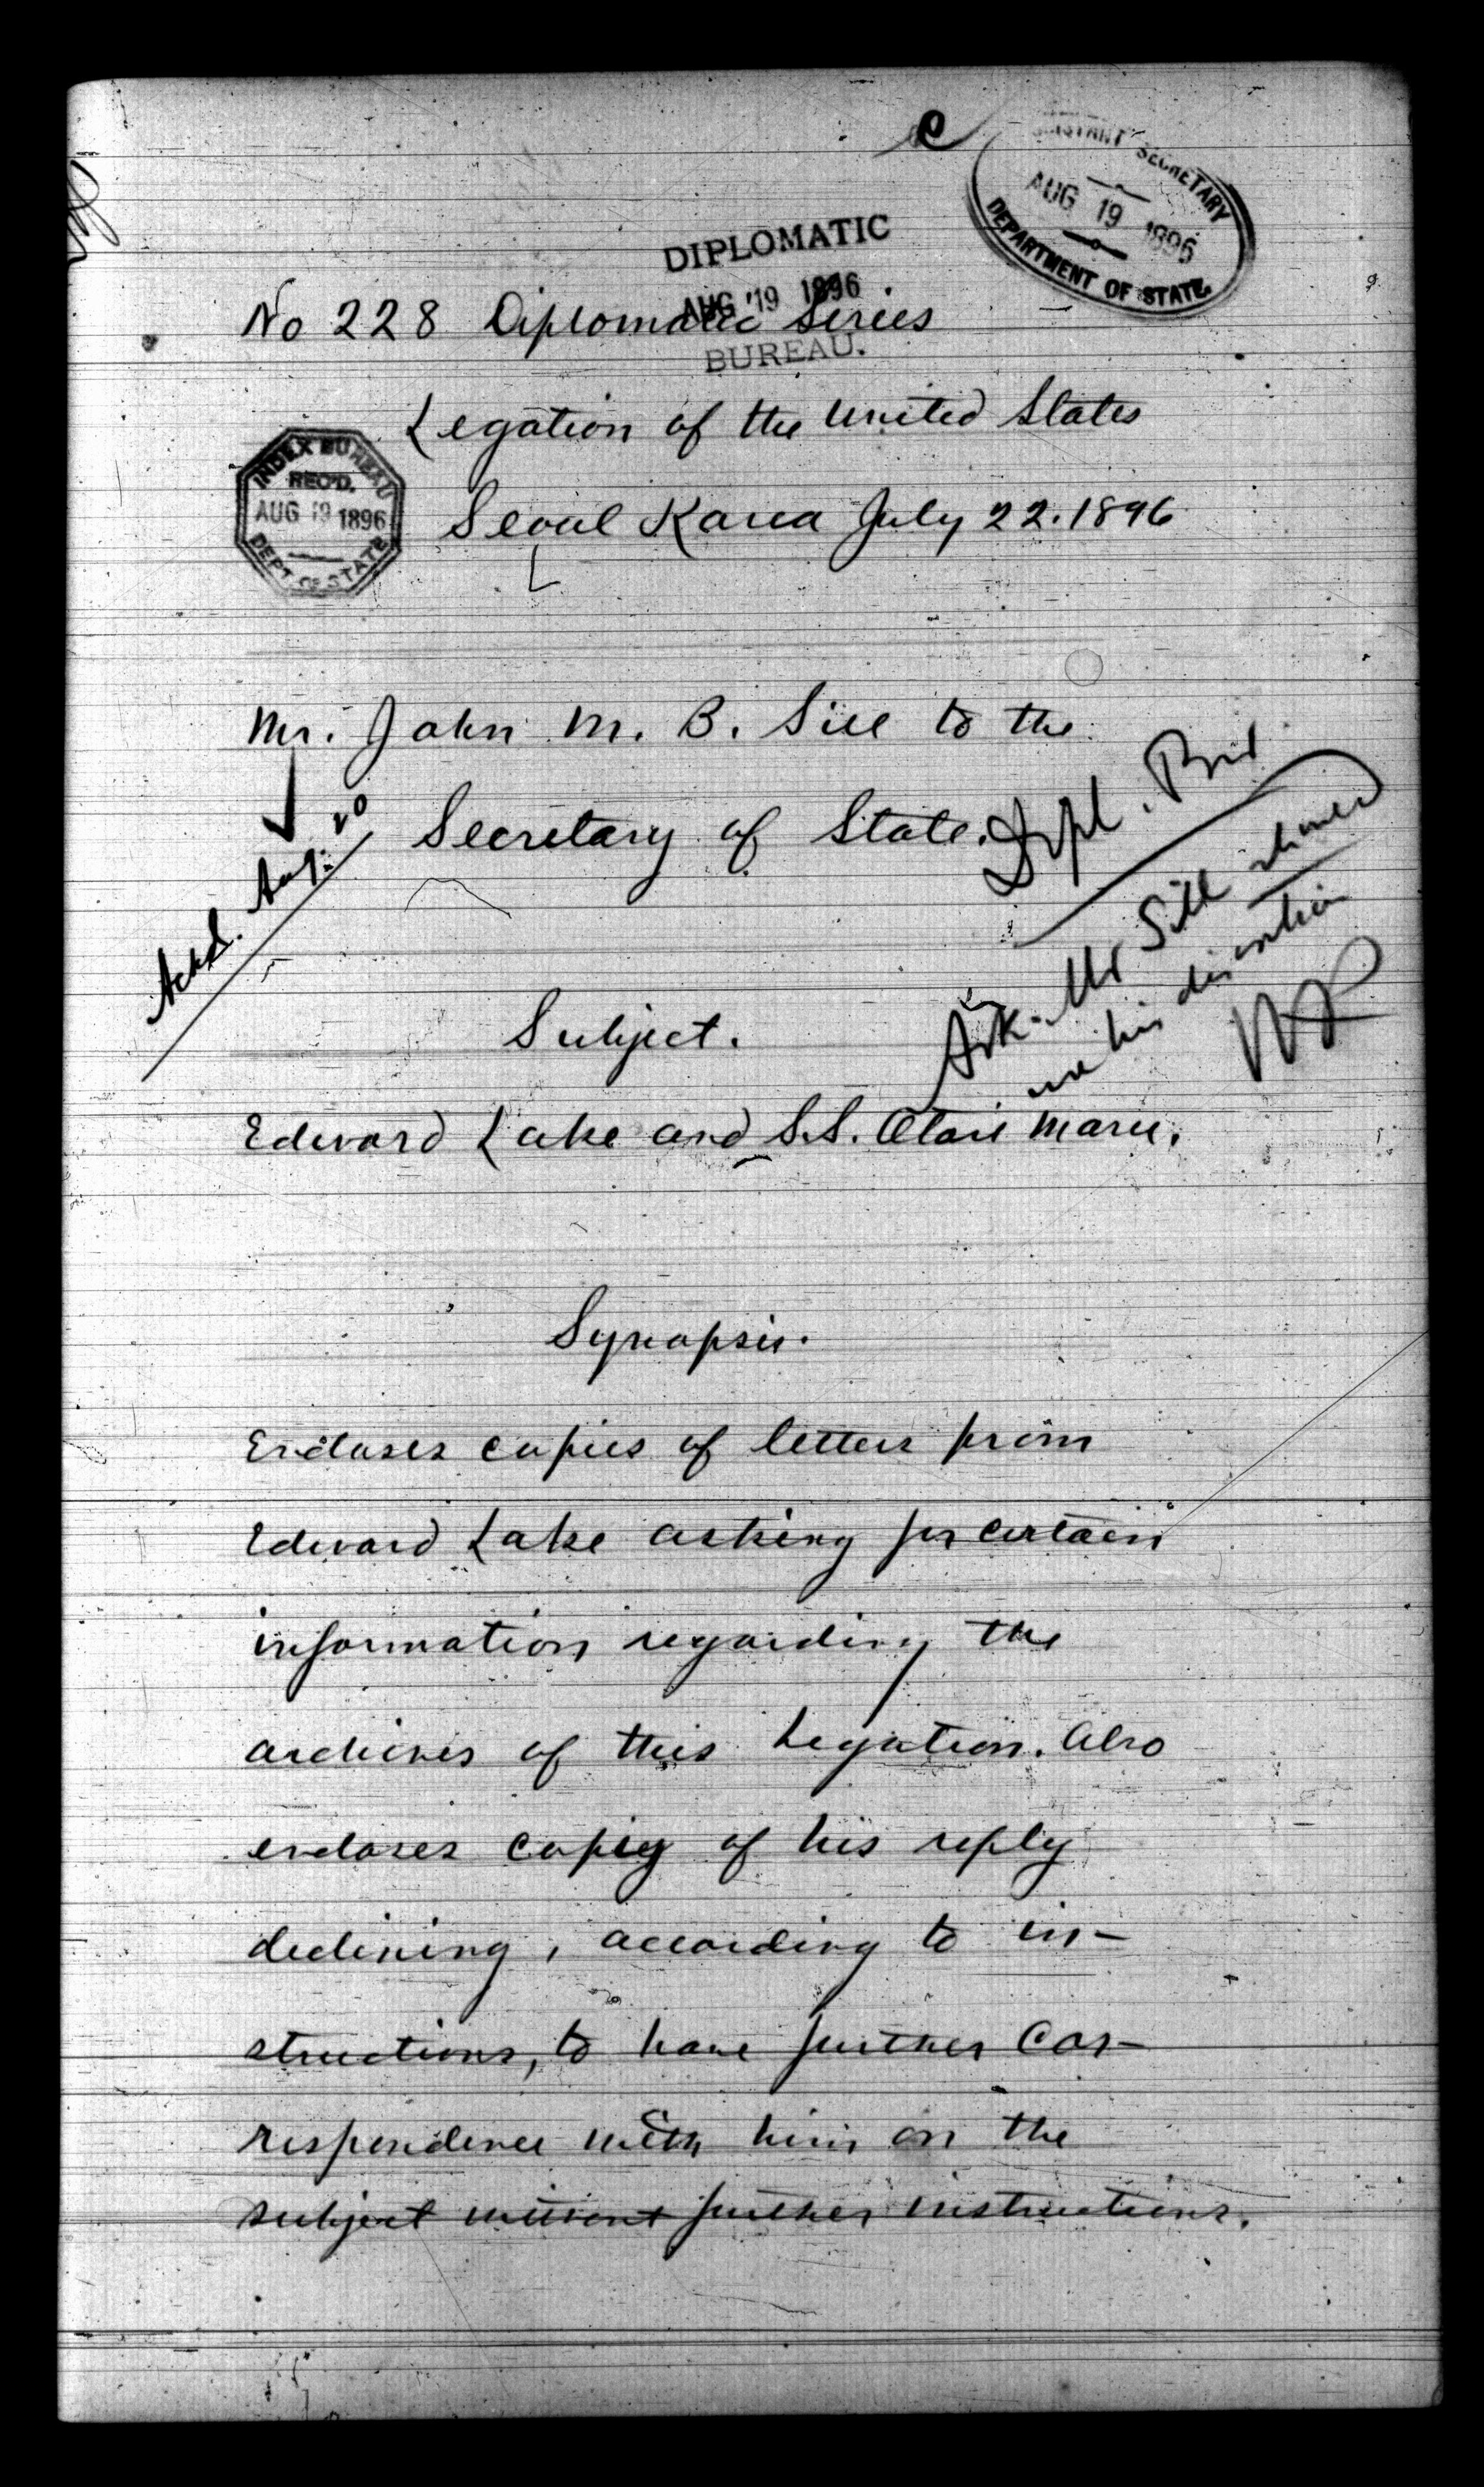 ASSISTANT SECRETARY
AUG 19 1896
DEPARTMENT OF STATE.
DIPLOMATIC
AUG 19 1896
BUREAU.
No 228 Diplomatic Series
Legation of the United States
INDEX BUREAU
REC'D.
AUG 19 1896
DEPT. OF STATE
Seoul Korea July 22. 1896
Mr. John M. B. Sill to the
Secretary of State.
Ackd. Aug. 20
Dipl. Bu
Ask Mr Sill
his discretion
Subject.
Edward Lake and S.S. Otari Maru.
Synopsis.
Encloses copies of letters from
Edward Lake asking for certain
information regarding the
archives of this Legation. Also
encloses copy of his reply
declining, according to in-
structions, to have further cor-
respondence with him on the
subject without further instructions.